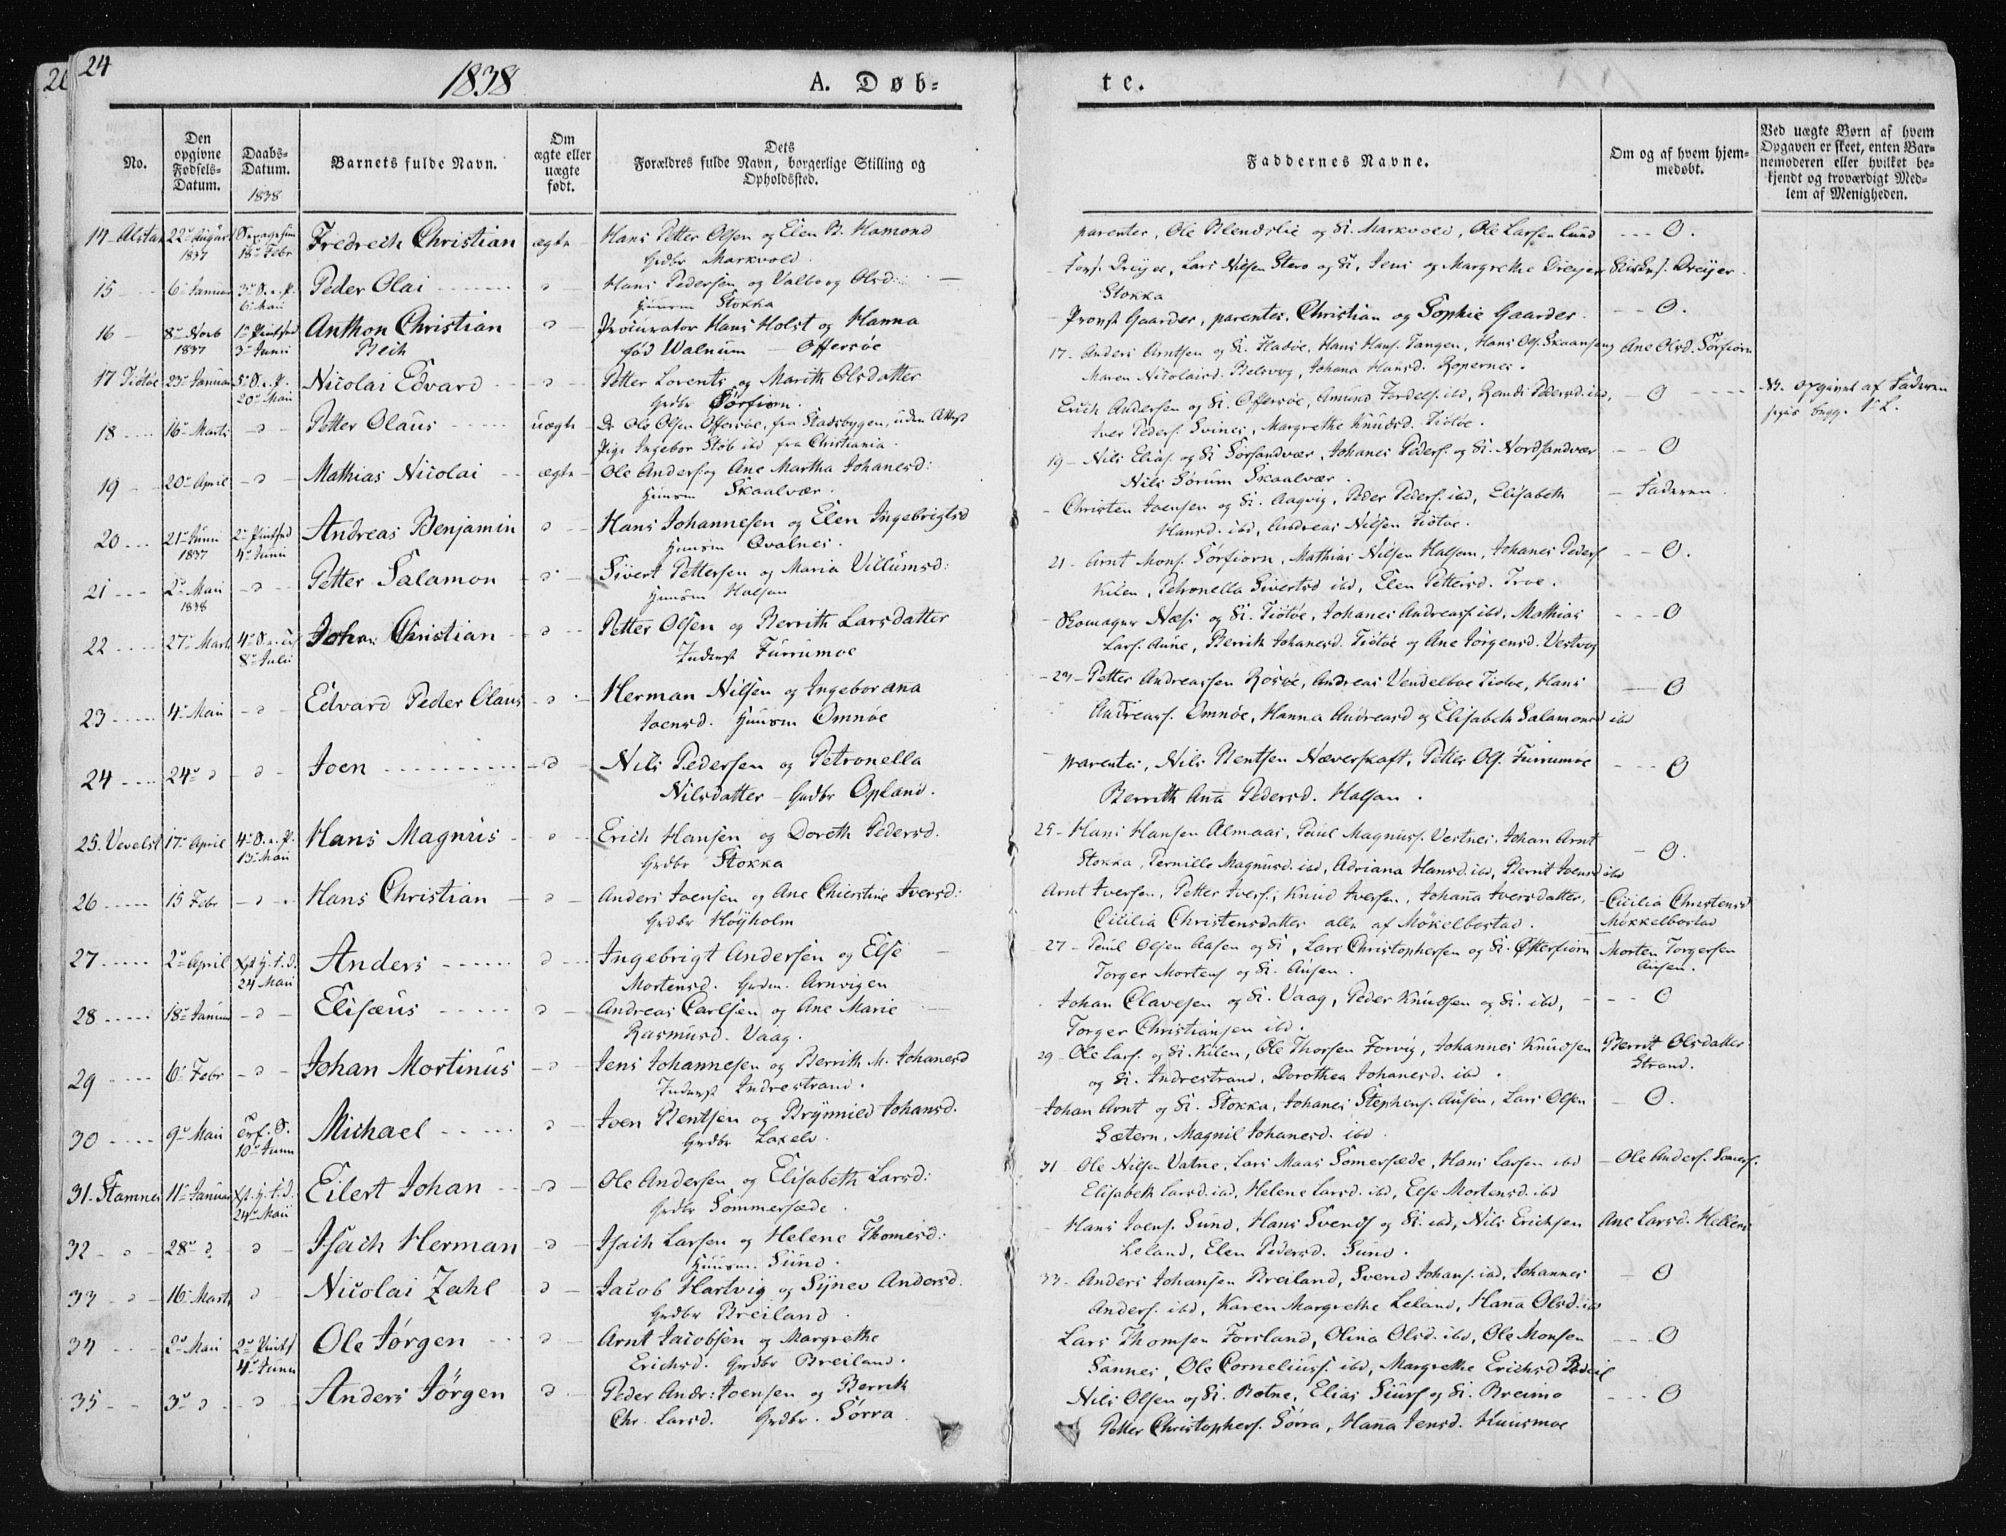 24
1838
A. Døb-
te.
No.
Den opgivne Fødsels-Datum.
Daabs-Datum.
1838
Barnets fulde Navn.
Om ægte eller uægte født.
Dets Forældres fulde Navn, borgerlige Stilling og Opholdssted.
Faddernes Navne.
Om og af hvem hjem-
medøbt.
Ved uægte Børn af hvem
Opgaven er skeet, enten Bar-
nemoderen eller hvilket be-
kjendt og troværdigt Med-
lem af Menigheden.
14 22 August 1837 18 Febr Fredrich Christian ægte Hans Petter Olsen og Elen B. Hamond
Grdbr Markvold.
parentes, Ole Blendslie og Markvold, Ole Larsen Lund O.
15 6 Januar 6 Mai Peder Olai Hans Pedersen og Valborg Olsd:
Huusm Stokka
Dreyer, Lars Nilsen Stero og Jens og Margrethe Dreyer Dreyer
Stokka
16 8 Novb 1837 3 Junii Anthon Christian Procurator Hans Holst og Hanna
Beih
fød Walnum Offersøe
Provst Gaarder, parentes, Christian og Sophie Gaarder. O.
17 Tiötöe 23 Januar 20 Mai Nicolai Edvard Petter Lorents og Marith Olsdatter
Grdbr Sörfiorn.
17 - Anders Arntsen og Hans Hans. Tangen, Hans Ols. Ane Olsd. Sörfiorn
Maren Nicolaisd. Belsvog, Johana Hansd. Ropernes.
18 16 Marts Petter Olaus uægte Ole Olsen Offersøe, fra Stadsbygen, uden Attest
Pige Ingebor Stöb ibd fra Christiania.
Erich Andersen og Offersøe, Amund Tordels. ibd, Randi Pedersd. ibd, O opgivet af Faderen
Iver Peders. Svines, Margrethe Knudsd. Tiötöe.
19 20 April Mathias Nicolai ægte Ole Anders. og Ane Martha Johanesd:
Huusm Skaalvær.
19 - Nils Elias. og Sörsandvær, Johanes Peders. og Nordsandvær O
Nils Sörum Skaalvær.
20 21 Junii 1837 4 Junii Andreas Benjamin Hans Johannesen og Elen Ingebrigtsd
Huusm Qvalnes.
Christen Joensen og Aagvig, Peder Peders. ibd, Elisabeth Faderen
Hansd. ibd, Andreas Nilsen Tiötöe.
21 2 Mai 1838 Petter Salamon Sivert Pettersen og Maria Villumsd:
Huusm Halsan
21 - Arnt Mons. Sörfiorn, Mathias Nilsen Halsan, Johanes Peders O.
Kilen, Petronella Sivertsd ibd, Elen Pettersd. Troe.
22 27 Marts 8 Julii Johan Christian Petter Olsen og Berrith Larsdatter
Inderst Furrumoe
Komager Næss og Tiötöe, Johanes Andreas. ibd, Mathias O
Lars. Aune, Berrith Johanesd. Tiötöe og Ane Jörgensd. Vestvog
23 4 Mai Edvard Peder Olaus Herman Nilsen og Ingeborana
Joensd. Huusm Omnöe
23 - Petter Andreassen Rosöe, Andreas Vendelboe Tiötöe, Hans O
Andreas. Omnöe, Hanna Andreasd og Elisabeth Salamonsd ibd
24 24 Joen Nils Pedersen og Petronella
Nilsdatter - Grdbr Opland.
parentes, Nils Bentsen Næverskaft, Petter Ols. Furrumoe O
Berrith Ana Pedersd. Halsan.
25. Vevelst 17 April 13 Mai Hans Magnus Erich Hansen og Doreth Pedersd.
Grdbr Stokka
25 - Hans Hansen Almaas, Paul Magnus. Vestnes, Johan Arnt O.
Stokka, Pernille Magnusd. ibd, Adriana Hansd. ibd, Bernt Joensd ibd
26 15 Febr Hans Christian Anders Joensen og Ane Chierstine Iversd:
Grdbr Höyholm
Arnt Iversen, Petter Ivers., Knud Iversen, Johana Iversdatter, Cicilia Christensd
Cicilia Christensdatter alle af Mökelbostad. Mökkelbostad
27 2 April 24 Mai Anders Ingebrigt Andersen og Else
Mortensd. Grdm. Arnvigen
27 - Paul Olsen Aasen og Lars Christophersen og Østerfiorn Morten Torgersen
Torger Mortens og Ausen. Ausen.
28 18 Januar Elisæus Andreas Carlsen og Ane Marie
Rasmusd. Vaag.
Johan Olavesen og Vaag, Peder Knudsen og ibd, O
Torger Christiansen ibd.
29 6 Febr Johan Mortinus Jens Johannesen og Berrith M. Johanesd
Inderst Indrestrand.
29 - Ole Lars. og Kilen, Ole Thorsen Forvig, Johannes Knudsen Berrit Olsdatter
og Indrestrand, Dorothea Johanesd. ibd. Strand.
30 9 Mai 10 Junii Michael Joen Bentsen og Brynnild Johansd.
Grdbr Laxelv.
Johan Arnt og Stokka, Johanes Stephens. Ausen, Lars Olsen O.
Sætern, Magnil Johanesd. ibd.
31. Stamnes 11 Januar 24 Maii Eilert Johan Ole Andersen og Elisabeth Larsd:
Grdbr Sommersæde.
31 - Ole Nilsen Vatne, Lars Maas Somersæde, Hans Larsen ibd Ole Anders. Somers.
Elisabeth Larsd. ibd, Helene Larsd. ibd, Else Mortensd. ibd
32 28 Isach Herman Isach Larsen og Helene Thomesd:
Huusm. Sund.
Hans Joens. Sund, Hans Svends og ibd, Nils Erichsen Ane Larsd.
Leland, Elen Pedersd. Sund.
33 16 Marts Nicolai Zahl Jacob Hartvig og Synev Andersd.
Grdbr Breiland.
33 - Anders Johansen Breiland, Svend Johans. ibd, Johannes O
Anders. ibd, Karen Margrethe Leland, Hana Olsd. ibd
34 2 Mai 4 Junii Ole Jörgen Arnt Jacobsen og Margrethe
Erichsd. Grdbr Breiland.
Lars Thomsen Forsland, Olina Olsd. ibd, Ole Monsen O
Sannes, Ole Cornelius. ibd, Margrethe Erichsd Breil
35 3 Anders Jörgen Peder Andr: Joensen og Berrith
Chr. Larsd. Grdbr. Sörra
Nils Olsen og Botne, Elias Siurs og Breimo O
Petter Christophers. Sörra, Hana Jensd. Huusmoe